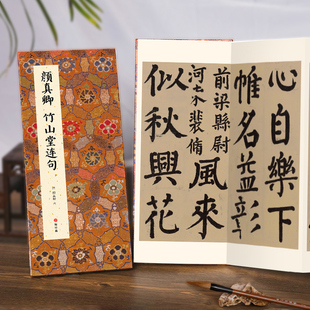 颜真卿 竹山堂连句
心自樂下
帷名益彰
前梁縣尉
河東裴脩
風來
似秋興花